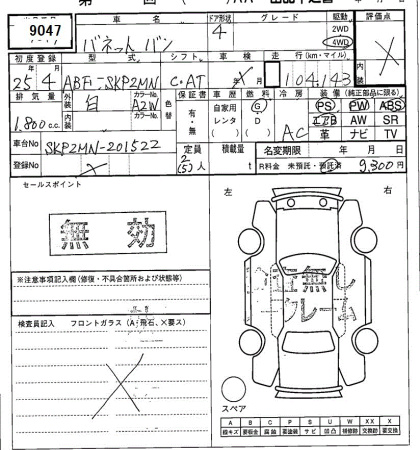 9047
車名 ドア形状 グレード 駆動 評価点
バネット バン 4 2WD
4WD
初度登録 型式 シフト 車検 走行(km・マイル) 内装
25 4 ABF-SKP2MN C・AT X 月 104,143
排気量 外装 カラーNo. 色替 保証書 車歴 燃料 冷房 装備(純正部品に限る)
1,800cc 白 A2W 有・無 自家用 レンタ G D AC PS PW ABS
内装 カラーNo. エアB AW SR
革 ナビ TV
車台No SKP2MN-201522 定員 2(5)人 積載量 t 名変期限 年 月 日
登録No R料金 未預託・預託済 9,300円
セールスポイント 左 右
無効
※注意事項記入欄(修復・不具合箇所および状態等)
無し
クレーム
検査員記入 フロントガラス(A・飛石、×要ス)
スペア
A B C P S U W X XX
線キズ 要板金 腐蝕 要塗装 サビ 凹凸 補修跡 交換跡 要交換